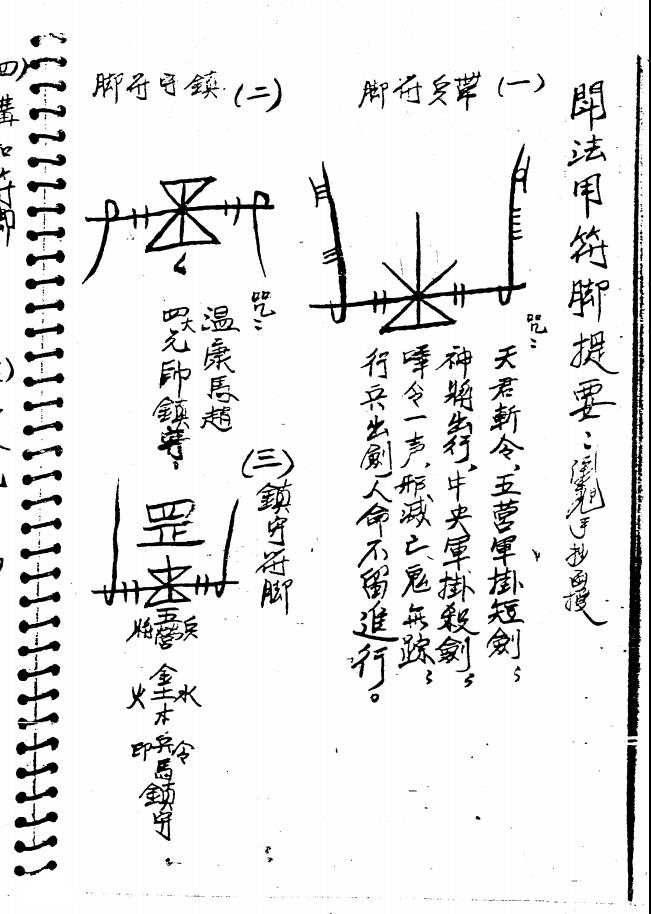 閗法用符脚提要：
手抄面授
(一) 帶兵符脚
咒：
天君斬令、五營軍掛短劍；
神將出行、中央軍掛殺劍；
唪令一声、形滅亡、鬼無踪；
行兵出劍人命不留進行。
(二) 鎮守符脚
咒：
溫康馬趙
四大元帥鎮守，
(三) 鎮守符脚
罡
五營兵將
金木水火土
兵馬印令鎮守
四)
符脚